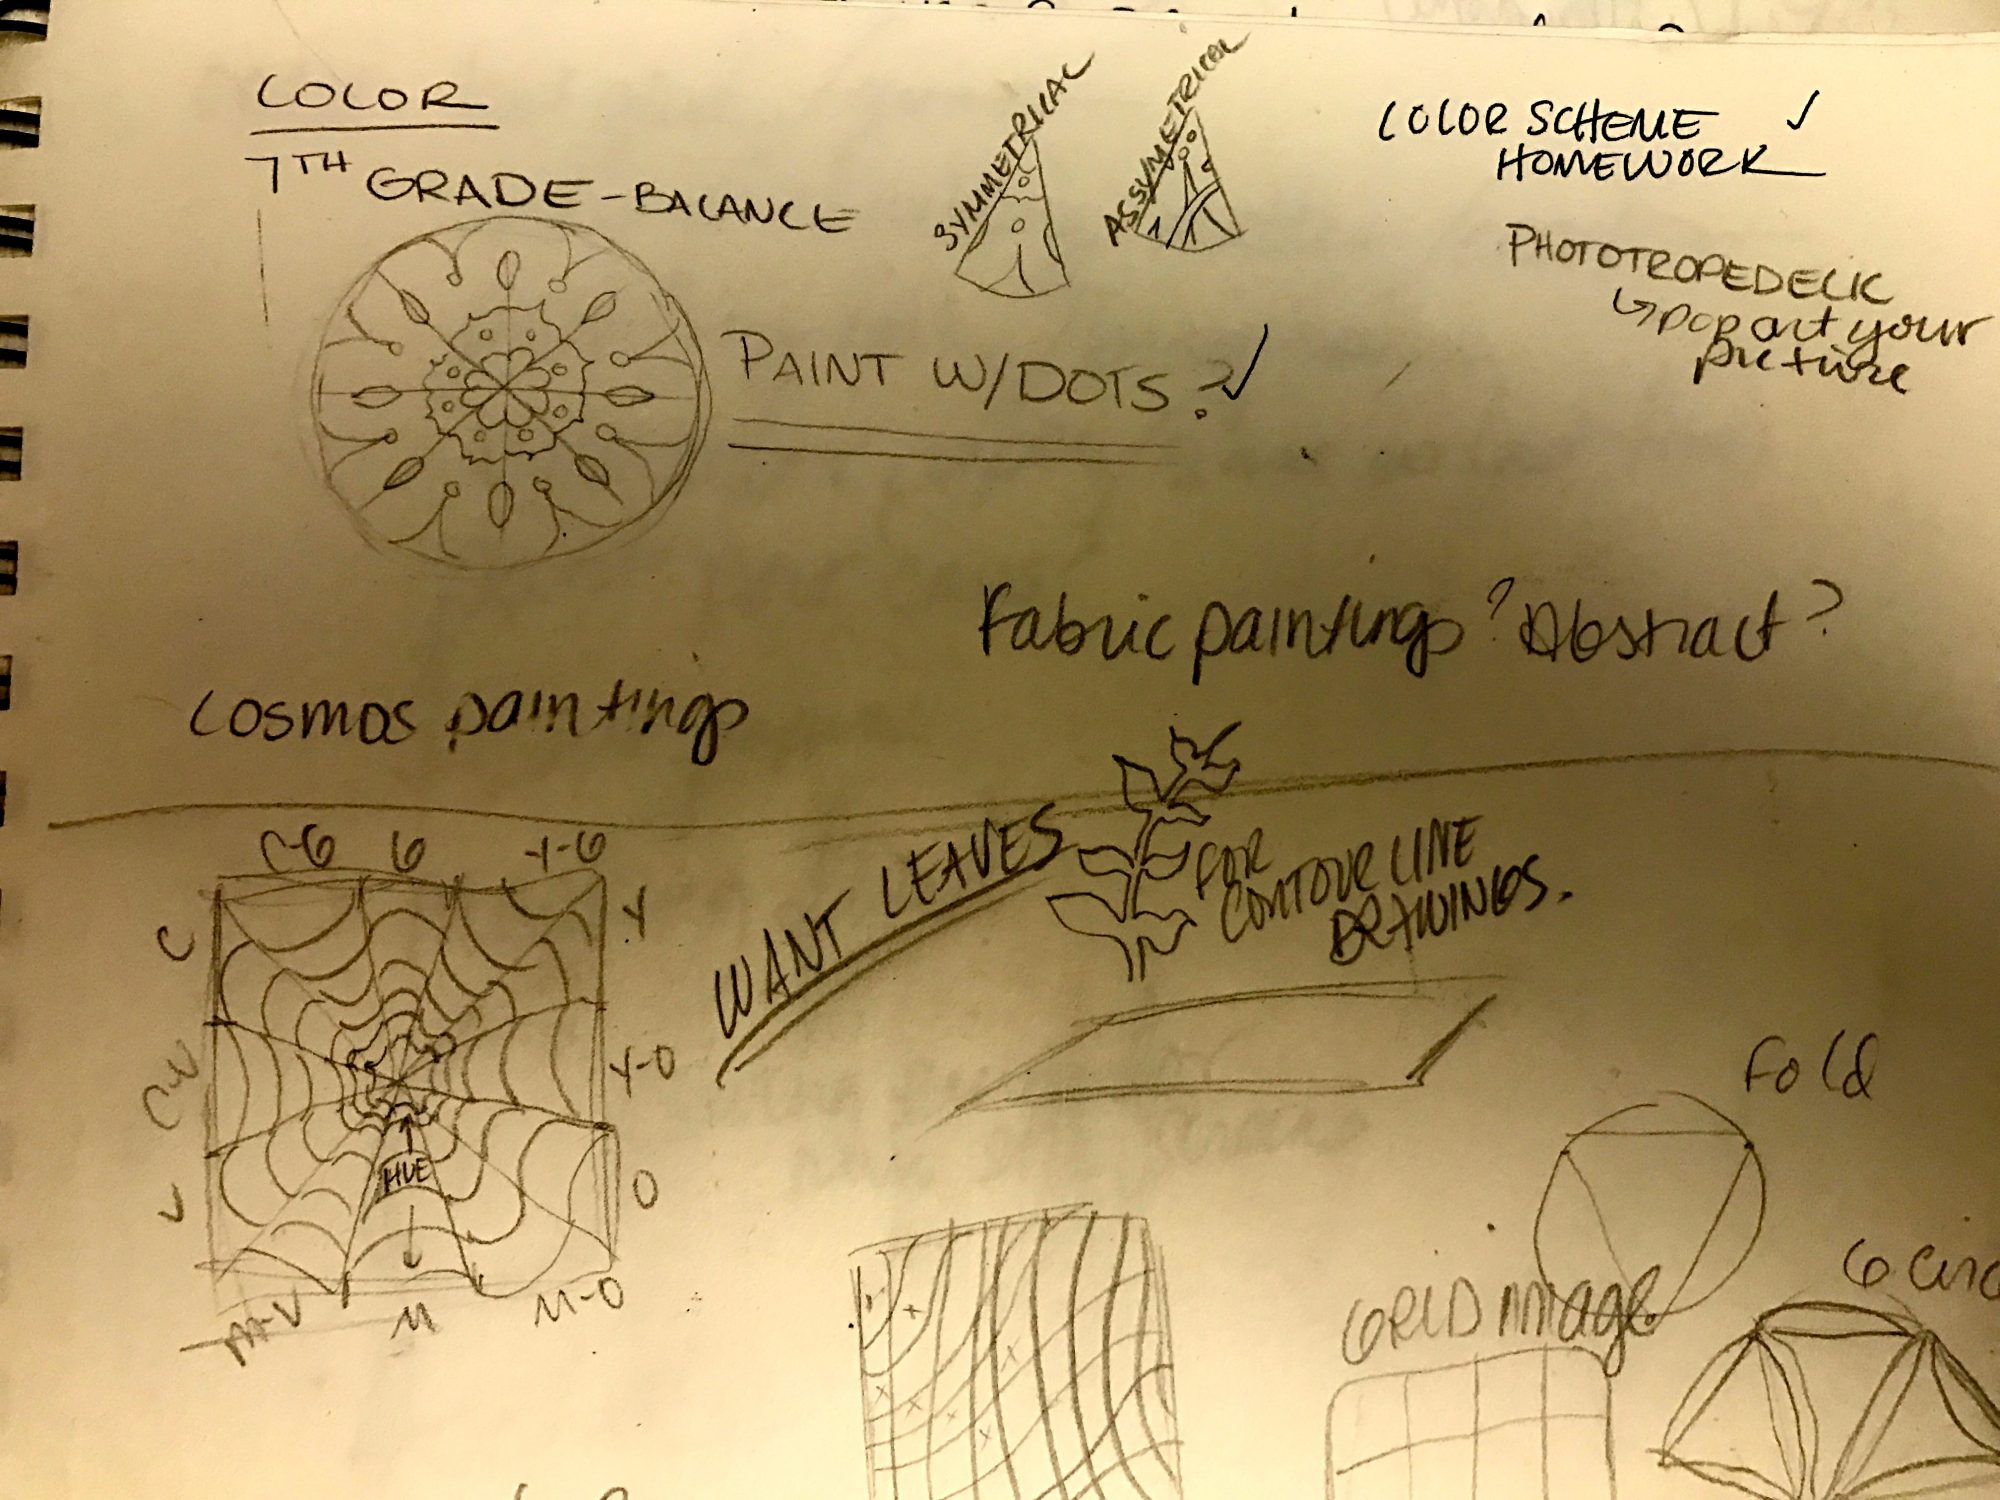 COLOR
7TH GRADE-BALANCE
SYMMETRICAL
ASSYMETRICAL
COLOR SCHEME ✓
HOMEWORK
PHOTOTROPEDELIC
↳ pop art your
picture
PAINT W/DOTS? ✓
Fabric paintings? Abstract?
Cosmos paintings
WANT LEAVES
FOR
CONTOUR LINE
DRAWINGS.
C-G G Y-G
C Y
C-V Y-O
HUE
V O
M-V M M-O
Fold
GRID image
6 circ